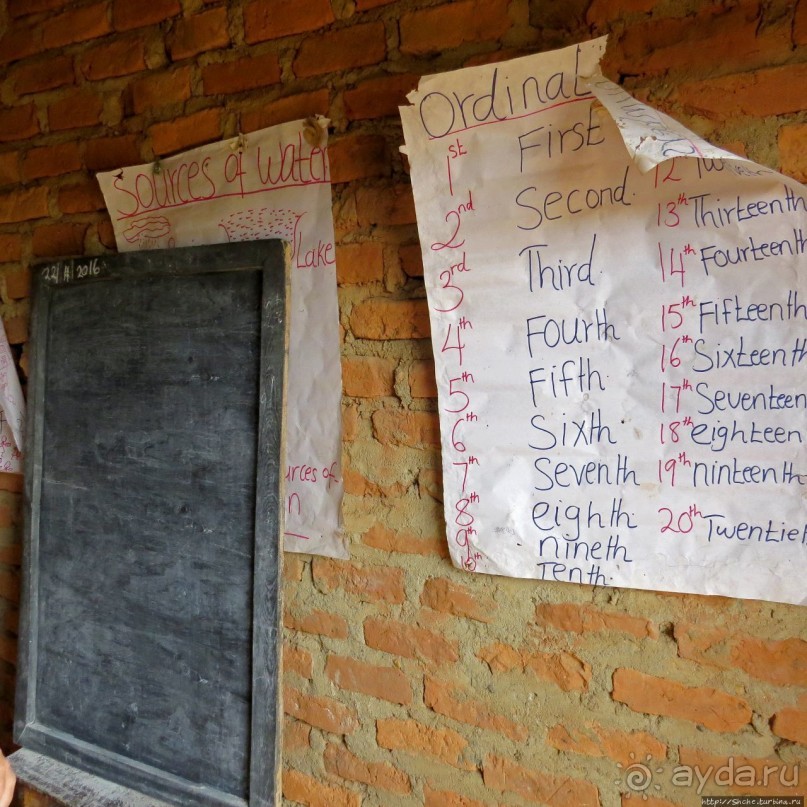 Sources of Water
Lake
22/4/2016
urces of
n
Ordinal
1st First
2nd Second
3rd Third
4th Fourth
5th Fifth
6th Sixth
7th Seventh
8th eighth
9th nineth
10th Tenth
12
13th Thirteenth
14th Fourteenth
15th Fifteenth
16th Sixteenth
17th Seventeen
18th eighteen
19th ninteenth
20th Twentiet
ayda.ru
https://Shche.turbina.ru